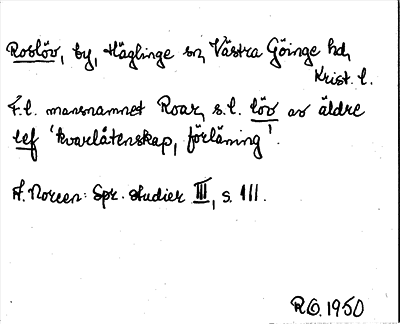 Roslöv, by, Häglinge sn, Västra Göinge hd,
Krist. l.
F.l. mansnamnet Roar, s.l. löv av äldre
lef 'kvarlåtenskap, förläning'.
A. Noreen: Spr. studier III, s. 111.
R.O. 1950